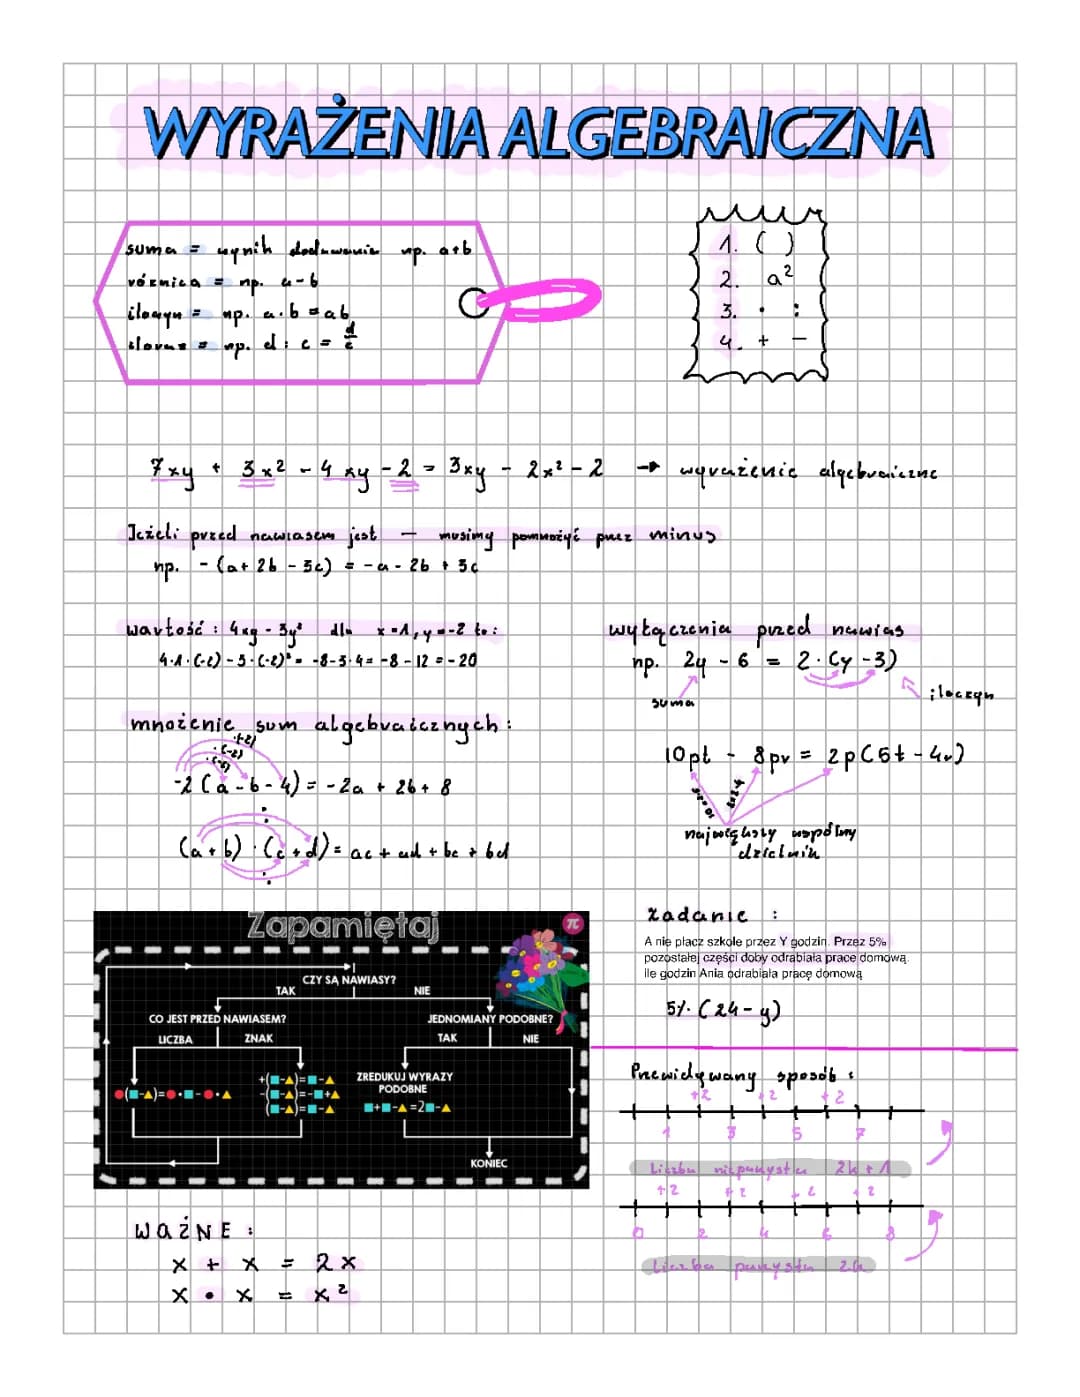 WYRAŻENIA ALGEBRAICZNA
suma = wynik dodawania np. a+b
różnica = np. a-b
iloczyn = np. a·b = ab
iloraz = np. d : c = d/c
1. ( )
2. a²
3. · :
4. + −
7xy + 3x² - 4xy - 2 = 3xy - 2x² - 2 → wyrażenie algebraiczne
Jeżeli przed nawiasem jest — musimy pomnożyć przez minus
np. - (a + 2b - 3c) = -a - 2b + 3c
wartość : 4xy - 3y² dla x=1, y=-2 to:
4·1·(-2) - 3·(-2)² = -8-3·4 = -8 - 12 = -20
wyłączenia przed nawias
np. 2y - 6 = 2·(y - 3)
suma
iloczyn
mnożenie sum algebraicznych :
·(-2)
·(-2)
·(-2)
-2 (a - b - 4) = -2a + 2b + 8
(a + b) · (c + d) = ac + ad + bc + bd
10pt - 8pv = 2p(5t - 4v)
największy wspólny
dzielnik
Zapamiętaj
π
CZY SĄ NAWIASY?
TAK NIE
CO JEST PRZED NAWIASEM?
JEDNOMIANY PODOBNE?
LICZBA ZNAK
TAK NIE
●(■-▲)=●·■-●·▲
+(■-▲)=■-▲
-(■-▲)=-■+▲
(■-▲)=■-▲
ZREDUKUJ WYRAZY
PODOBNE
■+■-▲=2■-▲
KONIEC
WAŻNE :
x + x = 2x
x · x = x²
zadanie :
A nię płacz szkole przez Y godzin. Przez 5%
pozostałej części doby odrabiała prace domową.
Ile godzin Ania odrabiała pracę domową
5%·(24-y)
Przewidywany sposób :
+2 +2 +2
1 3 5 7
Liczba nieparzysta 2k+1
+2 +2 +2 +2
0 2 4 6 8
Liczba parzysta 2k